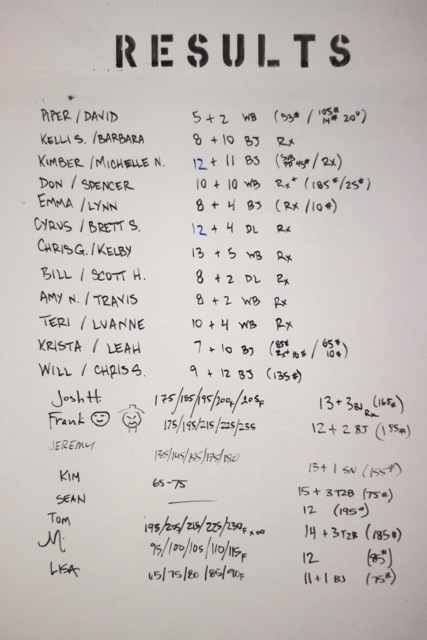 RESULTS
PIPER / DAVID 5 + 2 WB (53# / 105# 14# 20")
KELLI S. / BARBARA 8 + 10 BJ Rx
KIMBER / MICHELLE N. 12 + 11 BJ (45# / Rx)
DON / SPENCER 10 + 10 WB Rx+ (185#/25#)
EMMA / LYNN 8 + 4 BJ (Rx / 10#)
CYRUS / BRETT S. 12 + 4 DL Rx
CHRIS G. / KELBY 13 + 5 WB Rx
BILL / SCOTT H. 8 + 2 DL Rx
AMY N. / TRAVIS 8 + 2 WB Rx
TERI / LUANNE 10 + 4 WB Rx
KRISTA / LEAH 7 + 10 BJ (85# Rx+10# / 65# 10#)
WILL / CHRIS S. 9 + 12 BJ (135#)
Josh H. 175/185/195/200F/205F 13+3 BJ (165#) Rx
Frank 175/195/215/225/235 12+2 BJ (155#)
JEREMY 135/145/155/175/180 13+1 SN (155#)
KIM 65-75 15+3 T2B (75#)
SEAN 12 (195#)
TOM 195/205/215/225/230F 14+3 T2B (185#)
M 95/100/105/110/115F 12 (85#)
LISA 65/75/80/85/90F 11+1 BJ (75#)